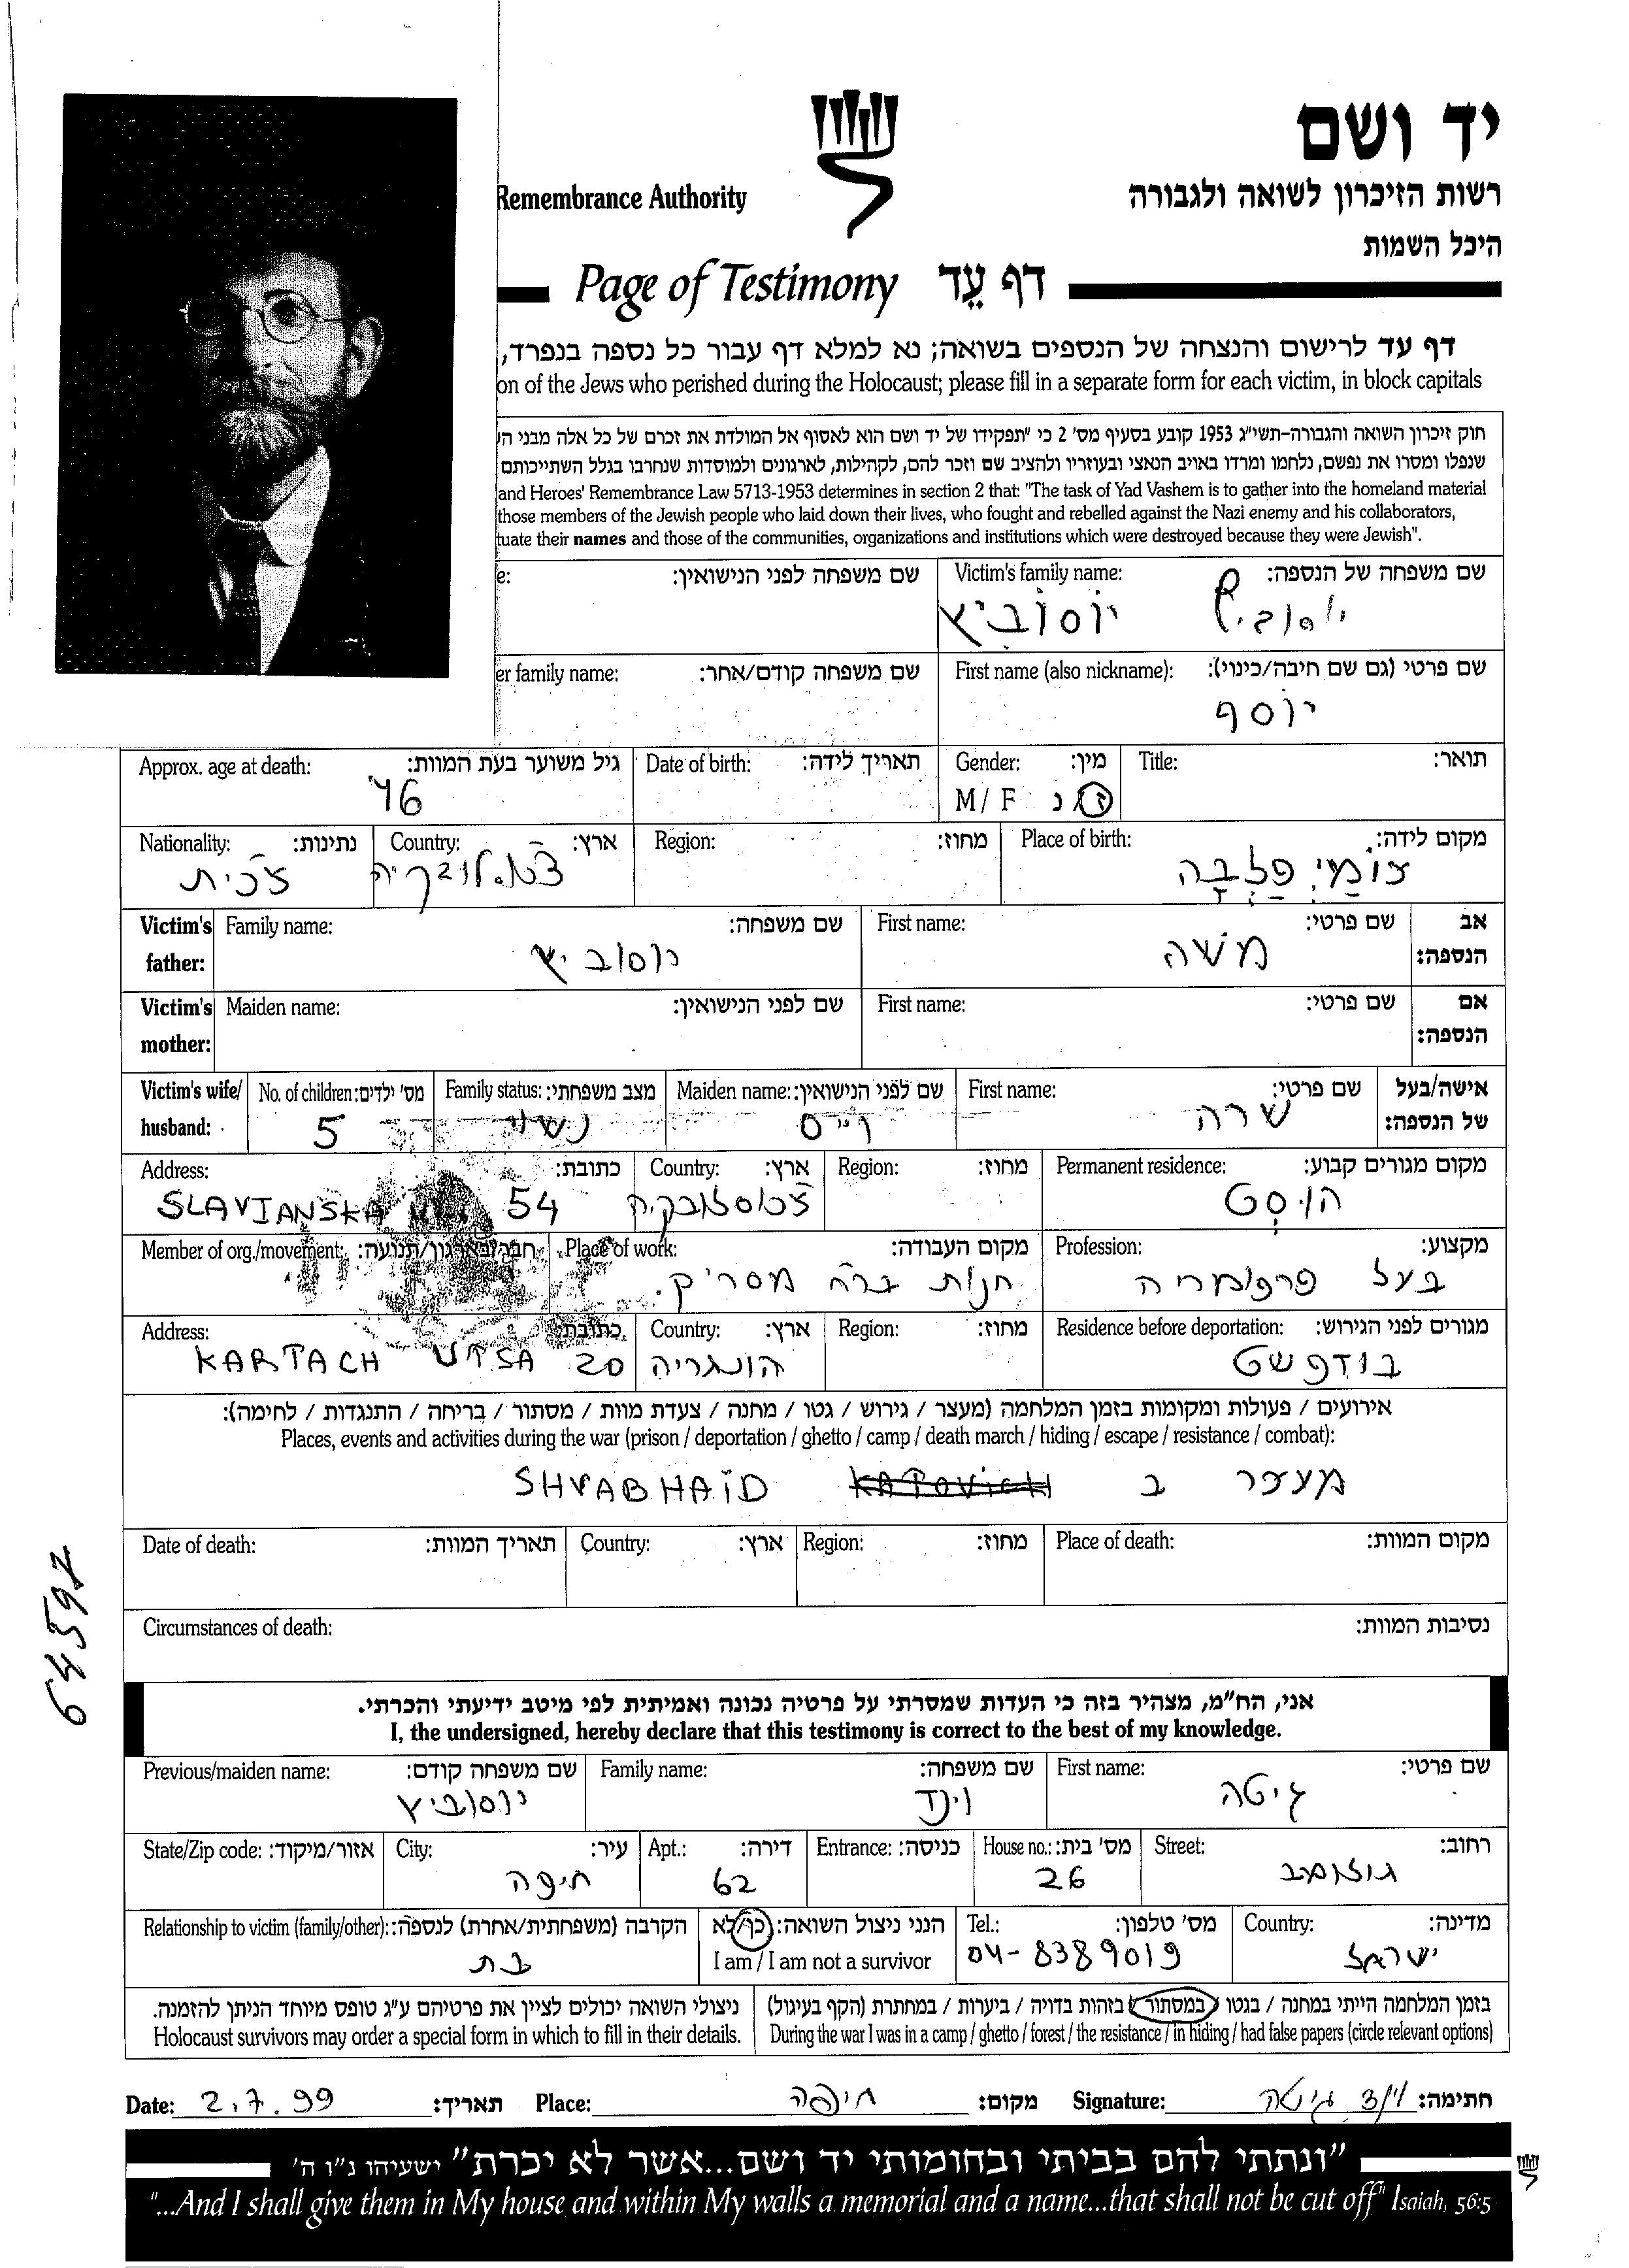 יד ושם
רשות הזיכרון לשואה ולגבורה
Remembrance Authority
היכל השמות
Page of Testimony דף עֵד
דף עד לרישום והנצחה של הנספים בשואה; נא למלא דף עבור כל נספה בנפרד,
on of the Jews who perished during the Holocaust; please fill in a separate form for each victim, in block capitals
חוק זיכרון השואה והגבורה-תשי"ג 1953 קובע בסעיף מס' 2 כי "תפקידו של יד ושם הוא לאסוף אל המולדת את זכרם של כל אלה מבני הע
שנפלו ומסרו את נפשם, נלחמו ומרדו באויב הנאצי ובעוזריו ולהציב שם וזכר להם, לקהילות, לארגונים ולמוסדות שנחרבו בגלל השתייכותם
and Heroes' Remembrance Law 5713-1953 determines in section 2 that: "The task of Yad Vashem is to gather into the homeland material
those members of the Jewish people who laid down their lives, who fought and rebelled against the Nazi enemy and his collaborators,
tuate their names and those of the communities, organizations and institutions which were destroyed because they were Jewish".
שם משפחה של הנספה: Victim's family name: שם משפחה לפני הנישואין: e:
יוסוביץ יוסוביץ
שם פרטי (גם שם חיבה/כינוי): First name (also nickname): שם משפחה קודם/אחר: er family name:
יוסף
תואר: Title: מין: Gender: תאריך לידה: Date of birth: גיל משוער בעת המוות: Approx. age at death:
ז/נ M/ F 46
מקום לידה: Place of birth: מחוז: Region: ארץ: Country: נתינות: Nationality:
צ'כית
אב הנספה: שם פרטי: First name: שם משפחה: Family name: Victim's father:
משה יוסוביץ
אם הנספה: שם פרטי: First name: שם לפני הנישואין: Maiden name: Victim's mother:
אישה/בעל של הנספה: שם פרטי: First name: שם לפני הנישואין: Maiden name: מצב משפחתי: Family status: מס' ילדים: No. of children: Victim's wife/ husband:
שרה וייס נשוי 5
מקום מגורים קבוע: Permanent residence: מחוז: Region: ארץ: Country: כתובת: Address:
הוסט צ'כוסלובקיה SLAVIANSKA 54
מקצוע: Profession: מקום העבודה: Place of work: חבר בארגון/תנועה: Member of org./movement:
בעל פרפומריה חנות ברח מסריק.
מגורים לפני הגירוש: Residence before deportation: מחוז: Region: ארץ: Country: כתובת: Address:
בודפשט הונגריה KARTACH UTSA 20
אירועים / פעולות ומקומות בזמן המלחמה (מעצר / גירוש / גטו / מחנה / צעדת מוות / מסתור / בריחה / התנגדות / לחימה):
Places, events and activities during the war (prison / deportation / ghetto / camp / death march / hiding / escape / resistance / combat):
מעצר ב KATOVICH SHVABHAID
מקום המוות: Place of death: מחוז: Region: ארץ: Country: תאריך המוות: Date of death:
נסיבות המוות: Circumstances of death:
64592
אני, הח"מ, מצהיר בזה כי העדות שמסרתי על פרטיה נכונה ואמיתית לפי מיטב ידיעתי והכרתי.
I, the undersigned, hereby declare that this testimony is correct to the best of my knowledge.
שם פרטי: First name: שם משפחה: Family name: שם משפחה קודם: Previous/maiden name:
גיטה וינד יוסוביץ
רחוב: Street: מס' בית: House no.: כניסה: Entrance: דירה: Apt.: עיר: City: אזור/מיקוד: State/Zip code:
26 62 חיפה
מדינה: Country: מס' טלפון: Tel.: הנני ניצול השואה: כן/לא הקרבה (משפחתית/אחרת) לנספה: Relationship to victim (family/other):
ישראל 04-8389019 I am / I am not a survivor בת
בזמן המלחמה הייתי במחנה / בגטו / במסתור / בזהות בדויה / ביערות / במחתרת (הקף בעיגול) ניצולי השואה יכולים לציין את פרטיהם ע"ג טופס מיוחד הניתן להזמנה.
During the war I was in a camp / ghetto / forest / the resistance / in hiding / had false papers (circle relevant options) Holocaust survivors may order a special form in which to fill in their details.
חתימה: וינד גיטה Signature: מקום: חיפה Place: תאריך: 2.7.99 Date:
"ונתתי להם בביתי ובחומותי יד ושם...אשר לא יכרת" ישעיהו נ"ו ה'
"...And I shall give them in My house and within My walls a memorial and a name...that shall not be cut off" Isaiah, 56:5